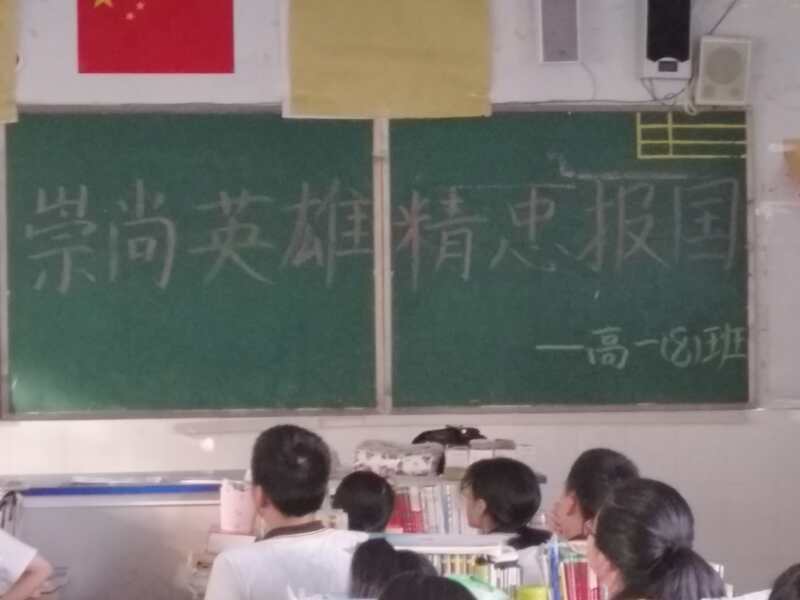 崇尚英雄精忠报国
—高一(8)班